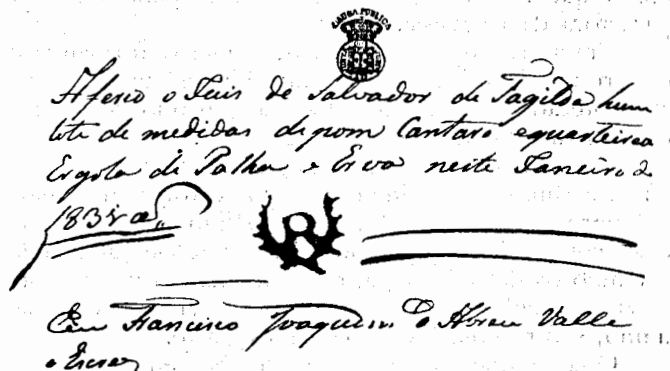 CAUSA PUBLICA
Aferio o Juis de Salvador de Tagilde hum
de medidas de pom Cantaro equarteirea
de Palha e Erva neste Janeiro de
183
Eu Francisco Joaquim d Abreu Valle